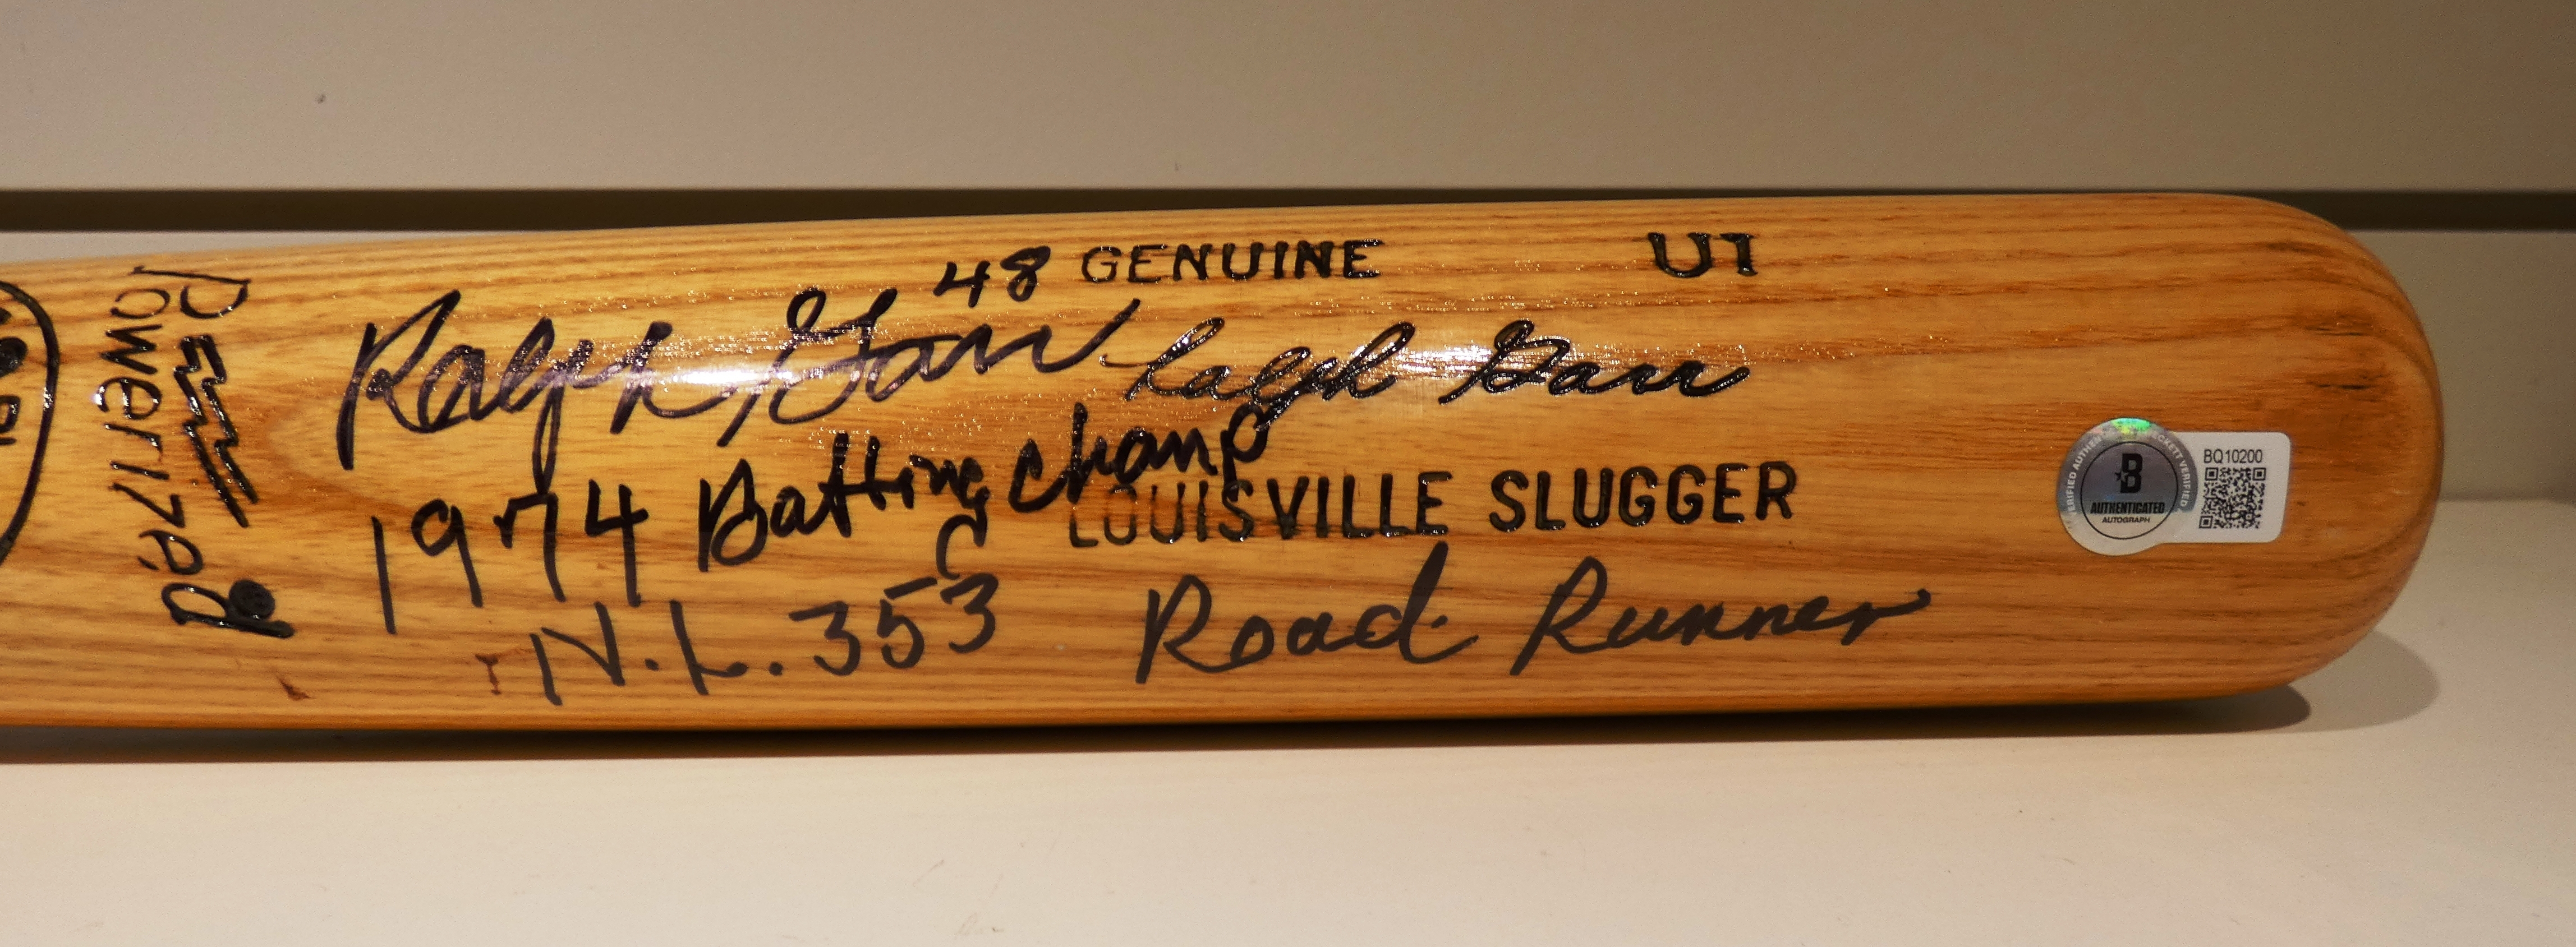 Powerized
48 GENUINE
U1
Ralph Garr
Ralph Garr
1974 Batting Champ
LOUISVILLE SLUGGER
N.L. 353
Road Runner
BQ10200
B
AUTHENTICATED
AUTOGRAPH